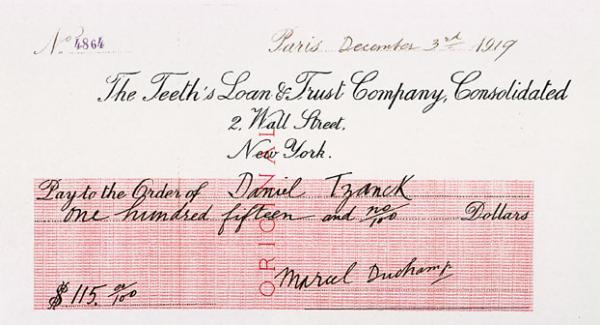 No 4864 Paris December 3rd 1919
The Teeth's Loan & Trust Company, Consolidated
2, Wall Street.
New York.
Pay to the Order of Daniel Tzanck
one hundred fifteen and no/100 Dollars
ORIGINAL
$ 115. no/100 Marcel Duchamp